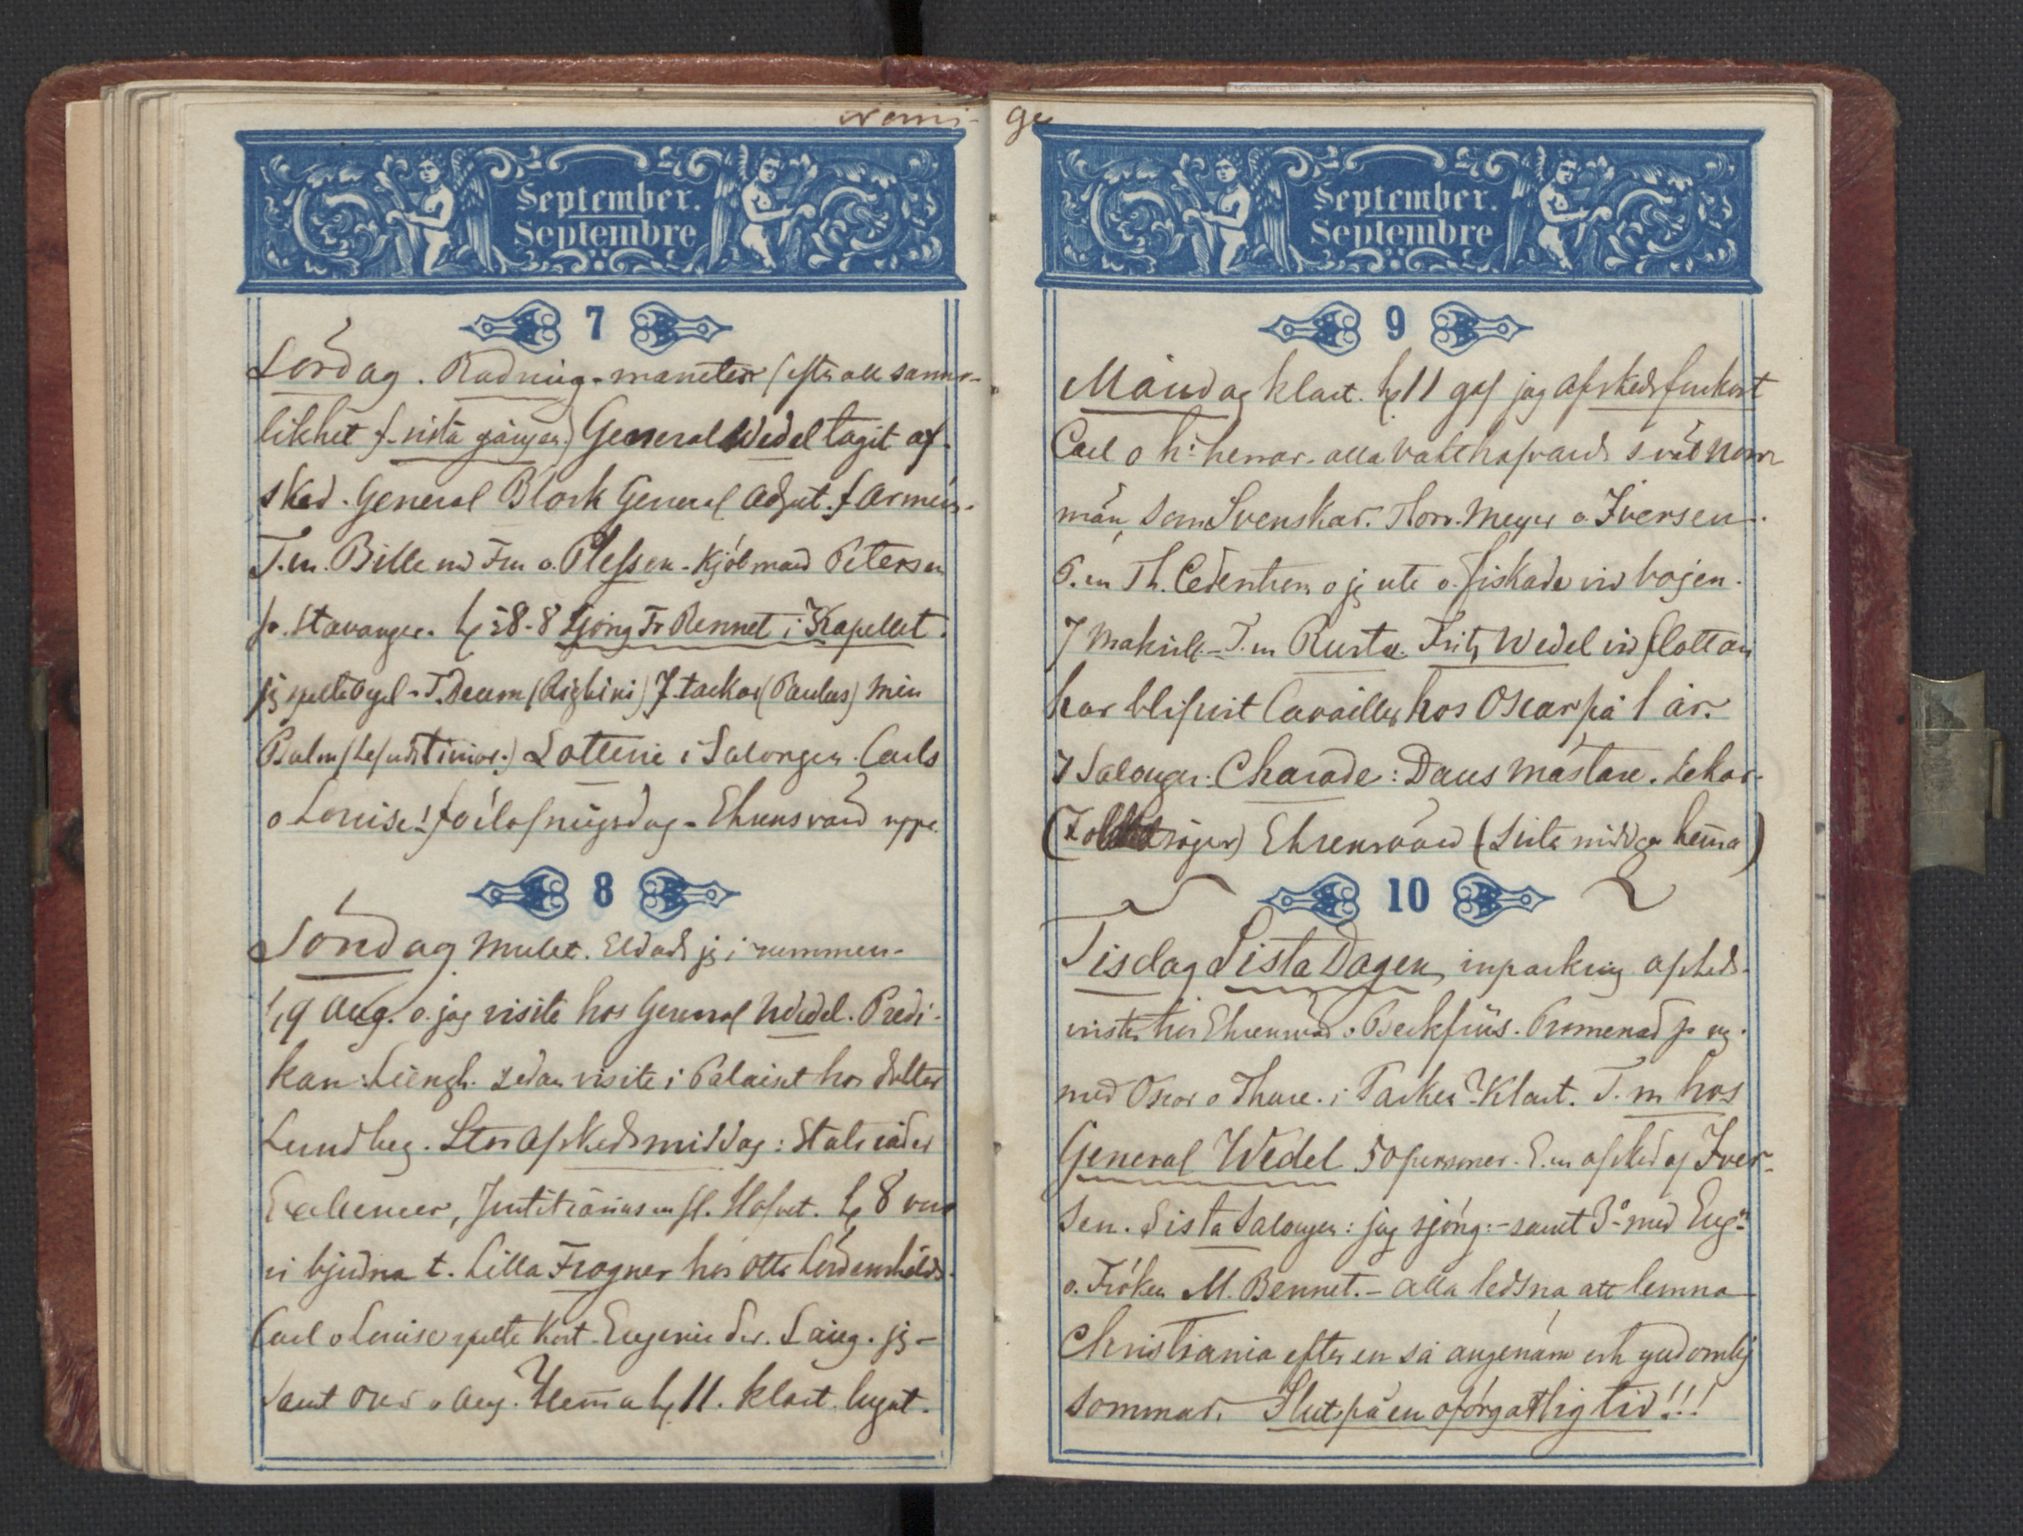 September.
Septembre
7
Lördag. Radning-maneter (efter all sann-
likhet f. sista gången) General Wedel tagit af-
sked. General Block General Adjut. f armén.
T.m. Bille o. Plessen - Kjöbmand Petersen
fr. Stavanger. 8 sjöng Fr Bennet i Kapellet.
jg spelte Orgel - T. Deum (Righini) J. tackar (Paulus) min
Psalm Lotterie i Salongen. Carls
o Louise! förlofningsdag - Ehrensvärd uppe.
8
Söndag mulet. Eldade jg i rummen -
Aug. o. jag visite hos General Wedel. Predi-
kan: Ljungh. sedan visite i Palaiset hos doktor
Lundberg. Stor Afskedsmiddag: Statsråder
Excellencer, Justitiarius m fl. Hofvet. 8 voro
vi bjudna t. Lilla Frogner hos Otto Lövenskiolds.
Carl o Louise spelte Kort Eugenie Sr. Sång. jg -
samt Oscar o Aug. Hemma kl 11. klart lugnt.
ge
September.
Septembre
9
Måndag klart. kl 11 gaf jag afskedsfrukost
Carl o hs herrar. alla vakthafvande såväl Norr
män, som Svenskar. Horr. Meyer o. Iversen.
E.m Th. Cederström o jg ute o. fiskade vid bojen.
7 Makrill - T.m Rustad. Fritz Wedel vid flottan
har blifvit Cavaillier hos Oscar på 1 år.
I Salongen: Charade: Dans mästare. Lekar.
Ehrensvärd (Sista middag hemma)
10
Tisdag Sista Dagen, inpackning afskeds-
visiter hos Ehrensvärd o Beckfriis. Promenad
med Oscar o Thure. i Parken - Klart. T. m hos
General Wedel 50 personer. E.m afsked af Iver-
sen. Sista Salongen: jag sjöng: - samt 3o med Eugie
o. Fröken M. Bennet. - alla ledsna att lemna
Christiania efter en så angenäm och gudomlig
sommar. Slut på en oförgätlig tid!!!